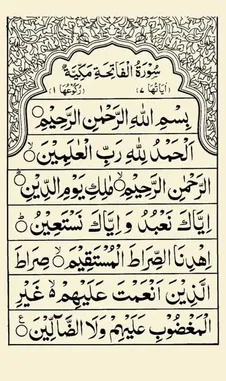 سُوْرَةُ الْفَاتِحَةِ مَكِّيَّةٌ
(اٰيَاتُهَا ٧) (رُكُوْعُهَا ١)
بِسْمِ اللّٰهِ الرَّحْمٰنِ الرَّحِيْمِ
اَلْحَمْدُ لِلّٰهِ رَبِّ الْعٰلَمِيْنَۙ
الرَّحْمٰنِ الرَّحِيْمِۙ مٰلِكِ يَوْمِ الدِّيْنِؕ
اِيَّاكَ نَعْبُدُ وَ اِيَّاكَ نَسْتَعِيْنُؕ
اِهْدِنَا الصِّرَاطَ الْمُسْتَقِيْمَۙ صِرَاطَ
الَّذِيْنَ اَنْعَمْتَ عَلَيْهِمْ ۙ۬ غَيْرِ
الْمَغْضُوْبِ عَلَيْهِمْ وَلَا الضَّآلِّيْنَ